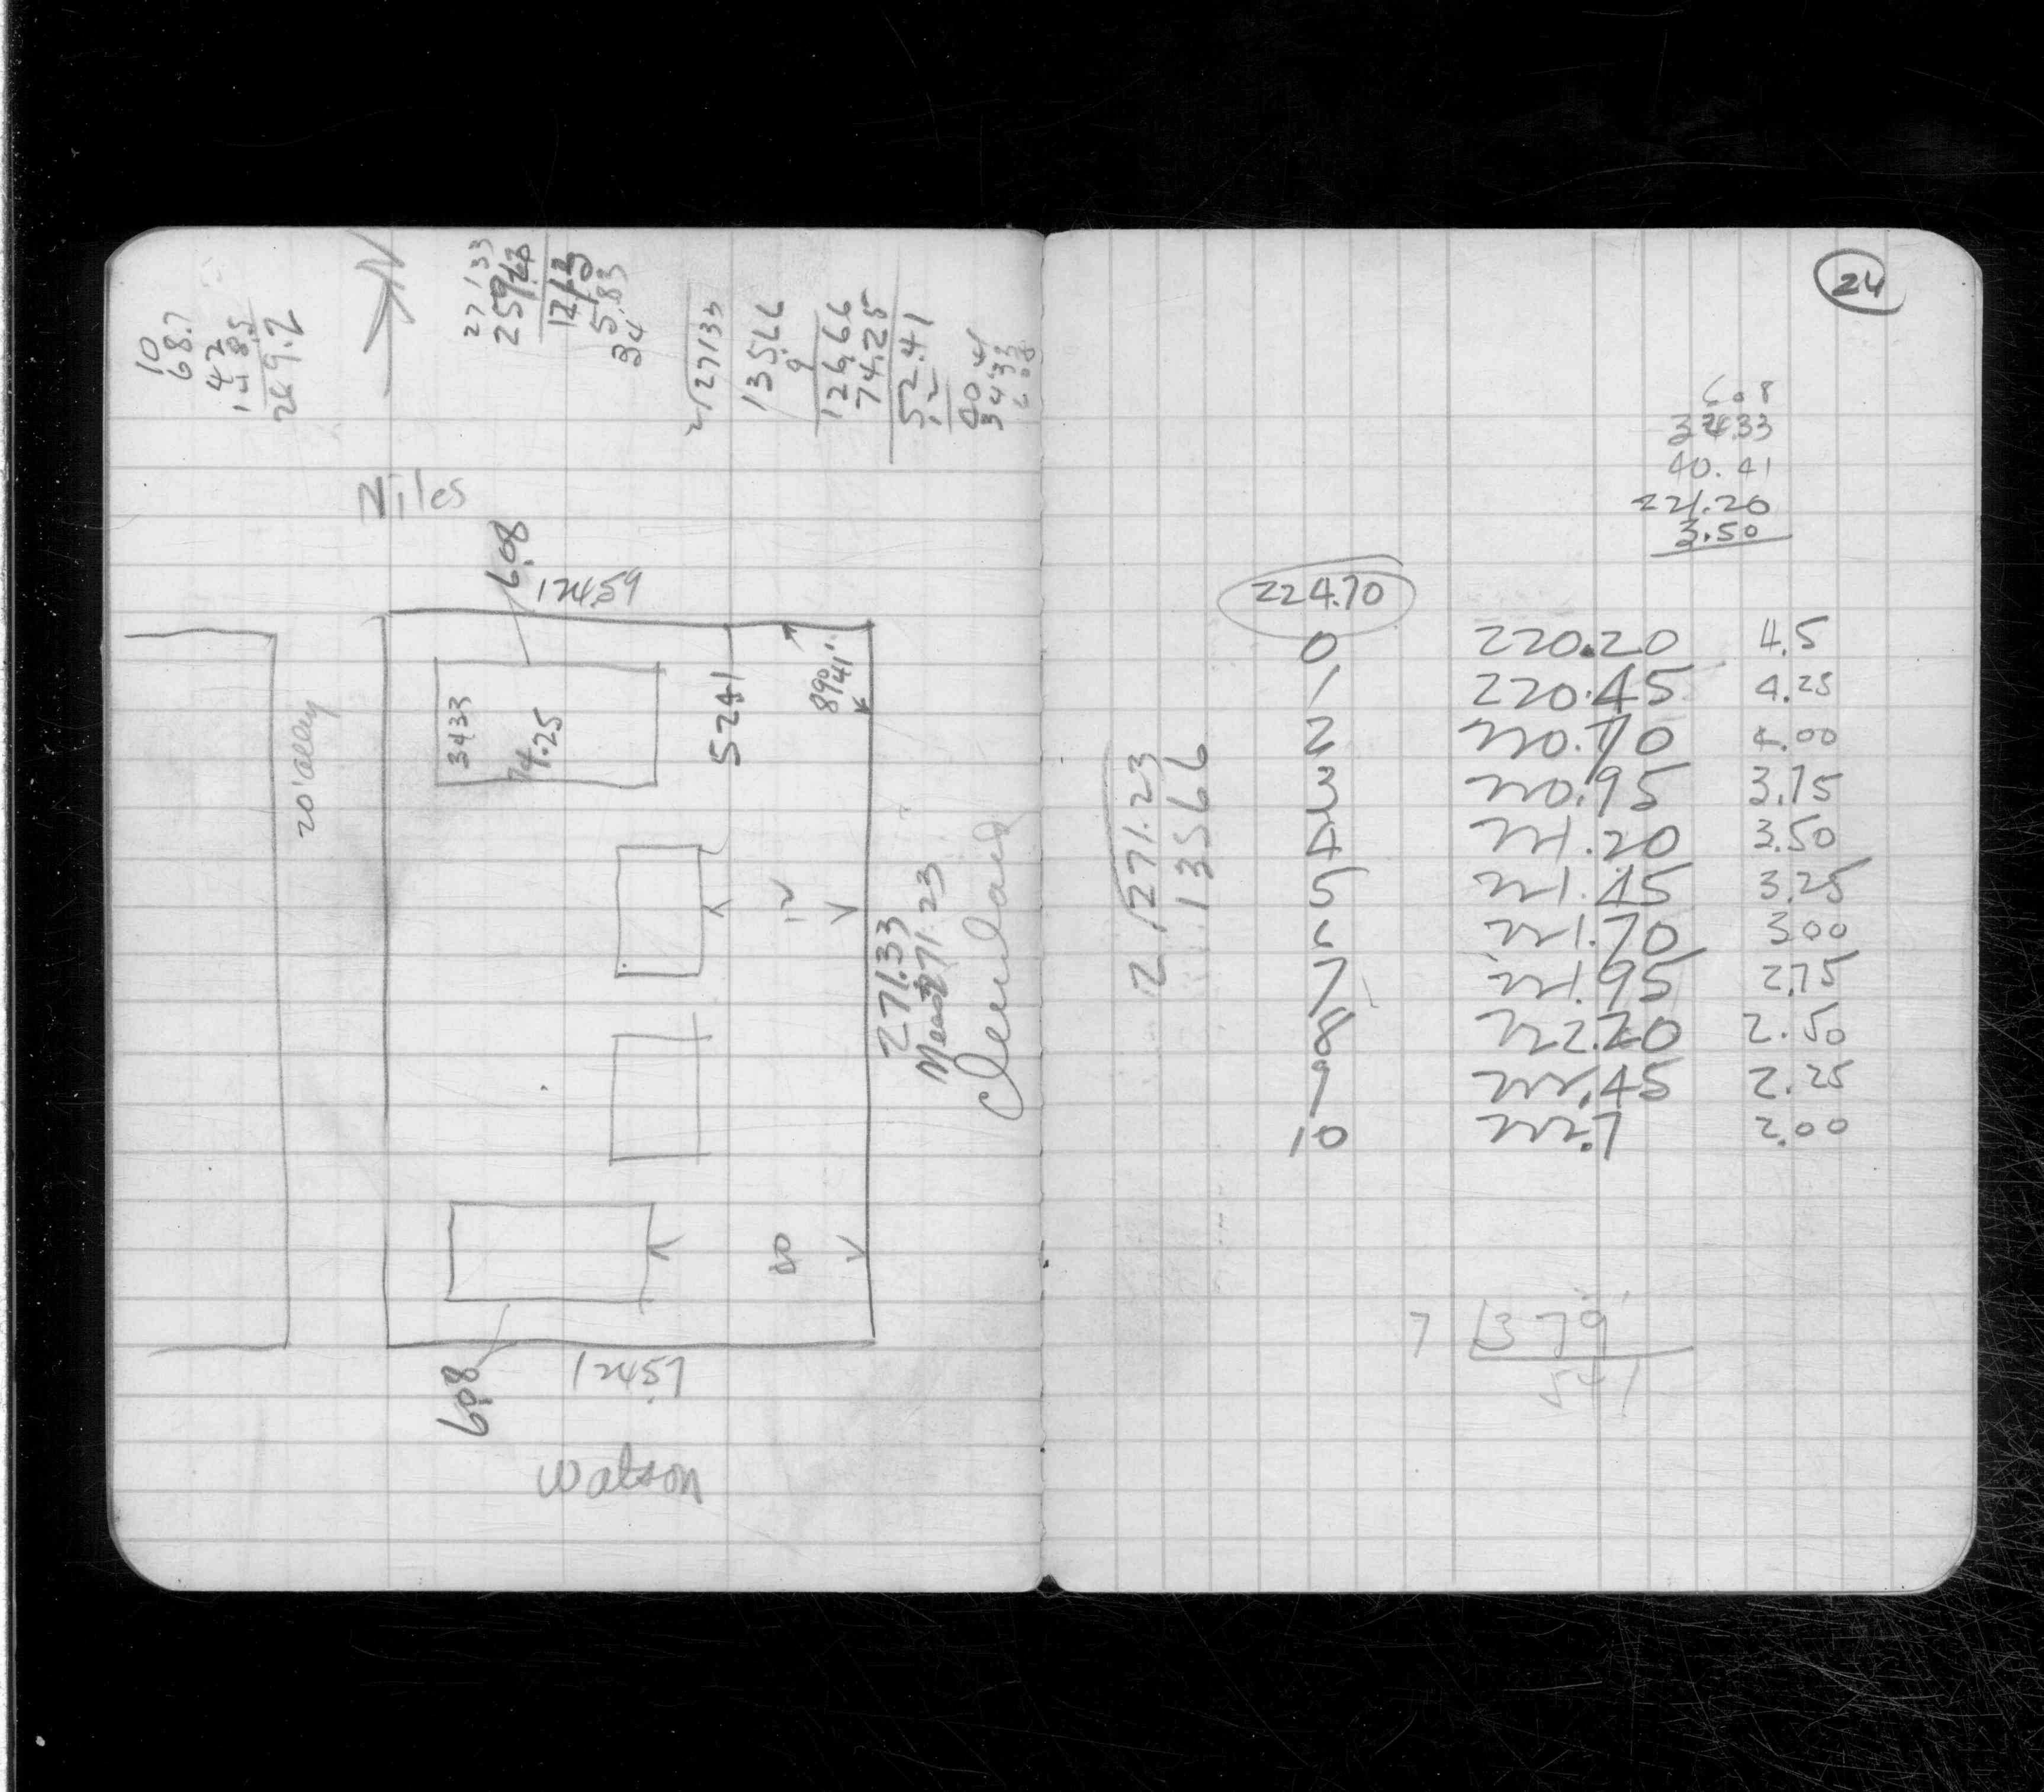 10
68.7
42
148.5
269.2
N
27133
5.83
34
2/27133
135.66
9
126.66
74.25
52.41
12
40.41
34.33
6.08
Niles
6.08
124.59
20' alley
34.33
74.25
52.41
89°41'
12
271.33
Meas 271.23
Cleveland
40
6.08
124.57
Watson
24
6.08
34.33
40.41
221.20
3.50
224.70
0 220.20 4.5
1 220.45 4.25
2 220.70 4.00
3 220.95 3.75
4 221.20 3.50
5 221.45 3.25
6 221.70 3.00
7 221.95 2.75
8 222.20 2.50
9 222.45 2.25
10 222.7 2.00
2/271.23
135.66
7 379
541